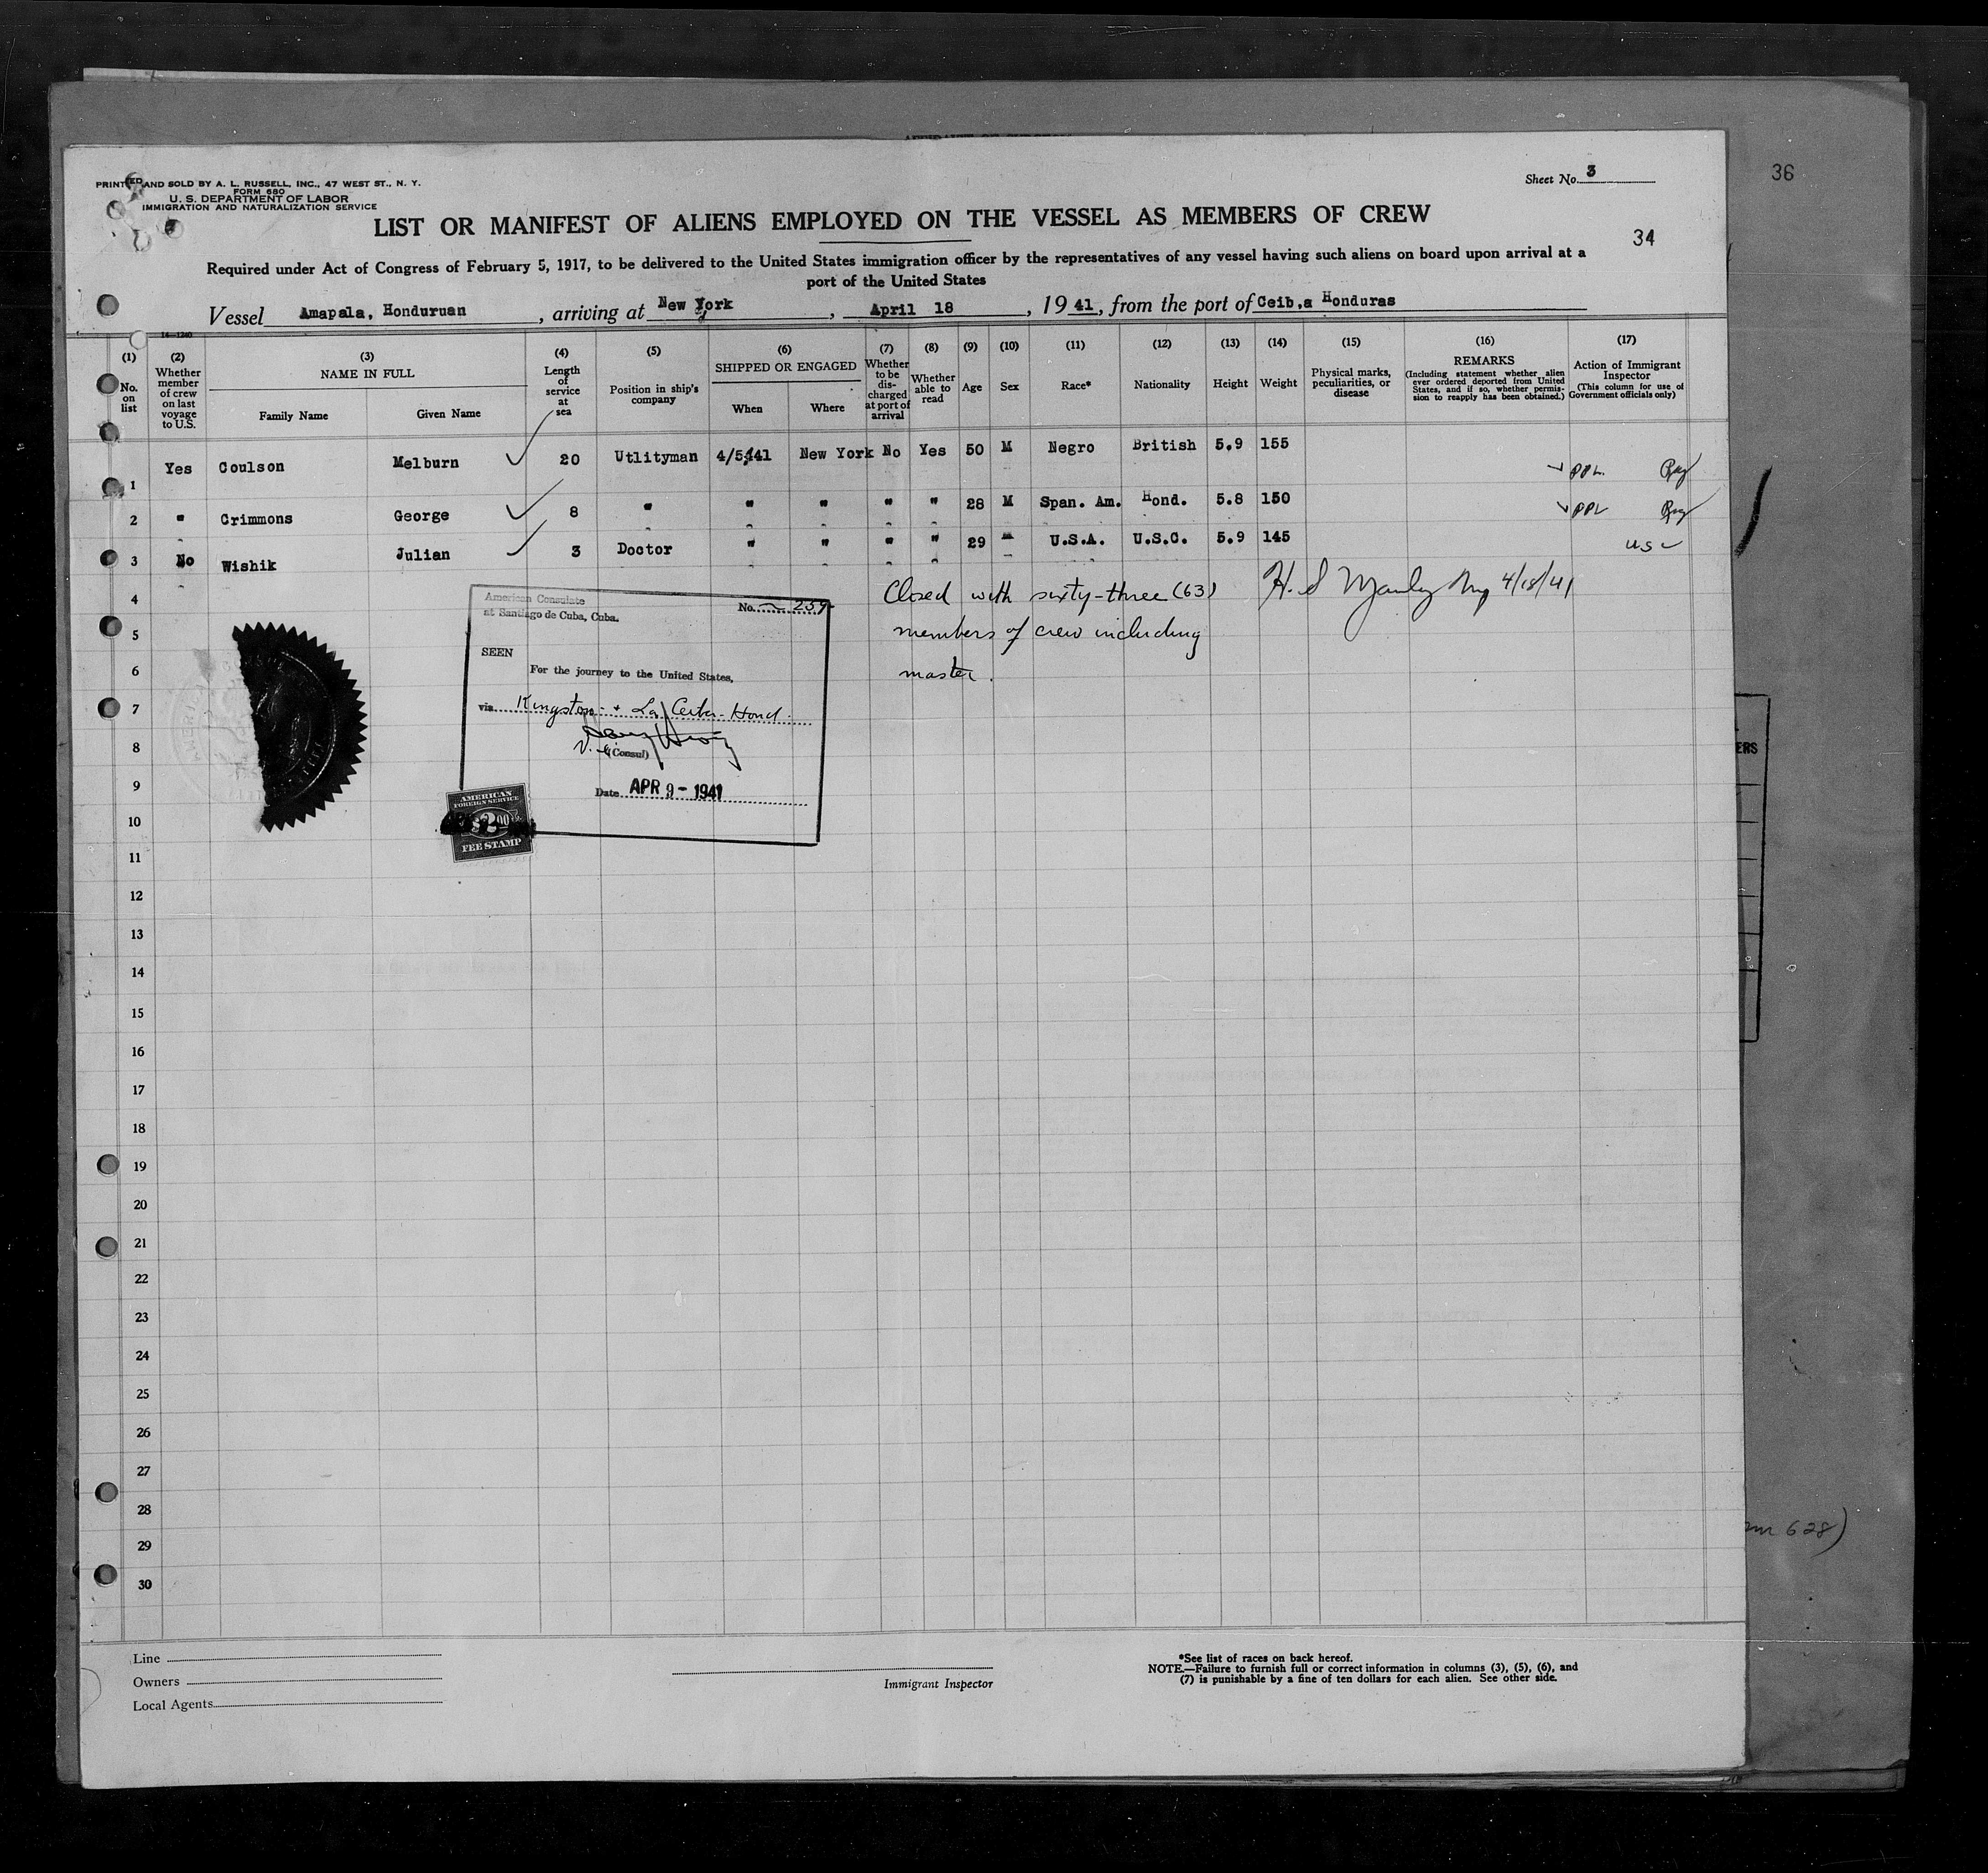 36
PRINTED AND SOLD BY A. L. RUSSELL, INC., 47 WEST ST., N. Y.
FORM 680
U. S. DEPARTMENT OF LABOR
IMMIGRATION AND NATURALIZATION SERVICE
Sheet No. 3
34
LIST OR MANIFEST OF ALIENS EMPLOYED ON THE VESSEL AS MEMBERS OF CREW
Required under Act of Congress of February 5, 1917, to be delivered to the United States immigration officer by the representatives of any vessel having such aliens on board upon arrival at a
port of the United States
Vessel Amapala, Honduruan, arriving at New York, April 18, 1941, from the port of Ceib,a Honduras
14—1240
(1) No. on list
(2) Whether member of crew on last voyage to U.S.
(3) NAME IN FULL
Family Name Given Name
(4) Length of service at sea
(5) Position in ship's company
(6) SHIPPED OR ENGAGED
When Where
(7) Whether to be discharged at port of arrival
(8) Whether able to read
(9) Age
(10) Sex
(11) Race*
(12) Nationality
(13) Height
(14) Weight
(15) Physical marks, peculiarities, or disease
(16) REMARKS
(Including statement whether alien ever ordered deported from United States, and if so, whether permission to reapply has been obtained.)
(17) Action of Immigrant Inspector
(This column for use of Government officials only)
1 Yes Coulson Melburn 20 Utlityman 4/5/41 New York No Yes 50 M Negro British 5.9 155 PPL
2 " Crimmons George 8 " " " " " 28 M Span. Am. Hond. 5.8 150 PPL
3 No Wishik Julian 3 Doctor " " " " 29 " U.S.A. U.S.C. 5.9 145 US
4
5
6
7
8
9
10
11
12
13
14
15
16
17
18
19
20
21
22
23
24
25
26
27
28
29
30
Closed with sixty-three (63)
members of crew including
master.
H. S Manley Insp 4/18/41
American Consulate
at Santiago de Cuba, Cuba.
No. 259
SEEN
For the journey to the United States,
via Kingston + La Ceiba-Hond.
V. (Consul)
Date APR 9 - 1941
AMERICAN
FOREIGN SERVICE
$2.00
FEE STAMP
ERS
628)
Line
Owners
Local Agents
Immigrant Inspector
*See list of races on back hereof.
NOTE.—Failure to furnish full or correct information in columns (3), (5), (6), and
(7) is punishable by a fine of ten dollars for each alien. See other side.